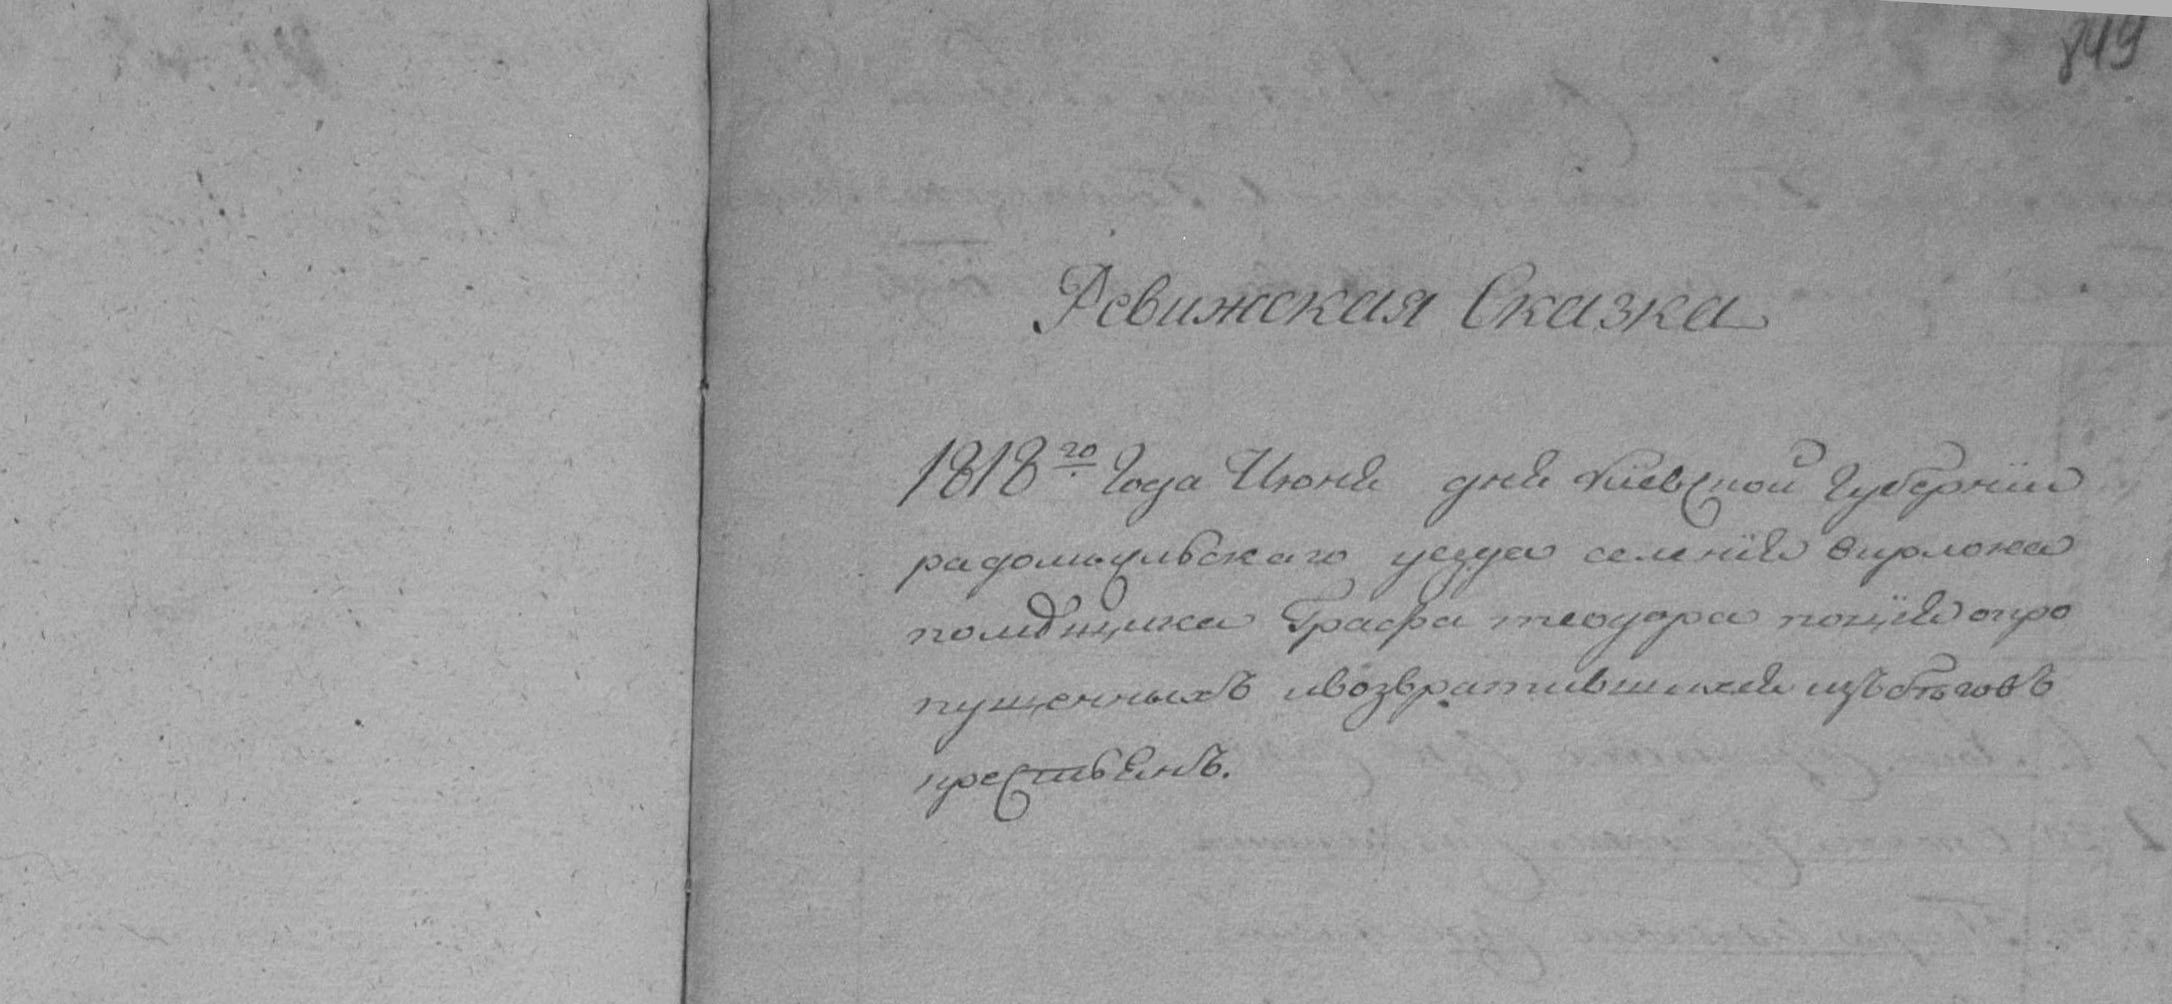 849
Ревижская Сказка
1818го Года Июня дня Киевской Губернїи
радомысльскаго уезда селенїя Вирлока
помѣщика Графа теодора поцѣя о про
пущенныхъ и возвратившихся изъ бѣговъ
крестьянъ.